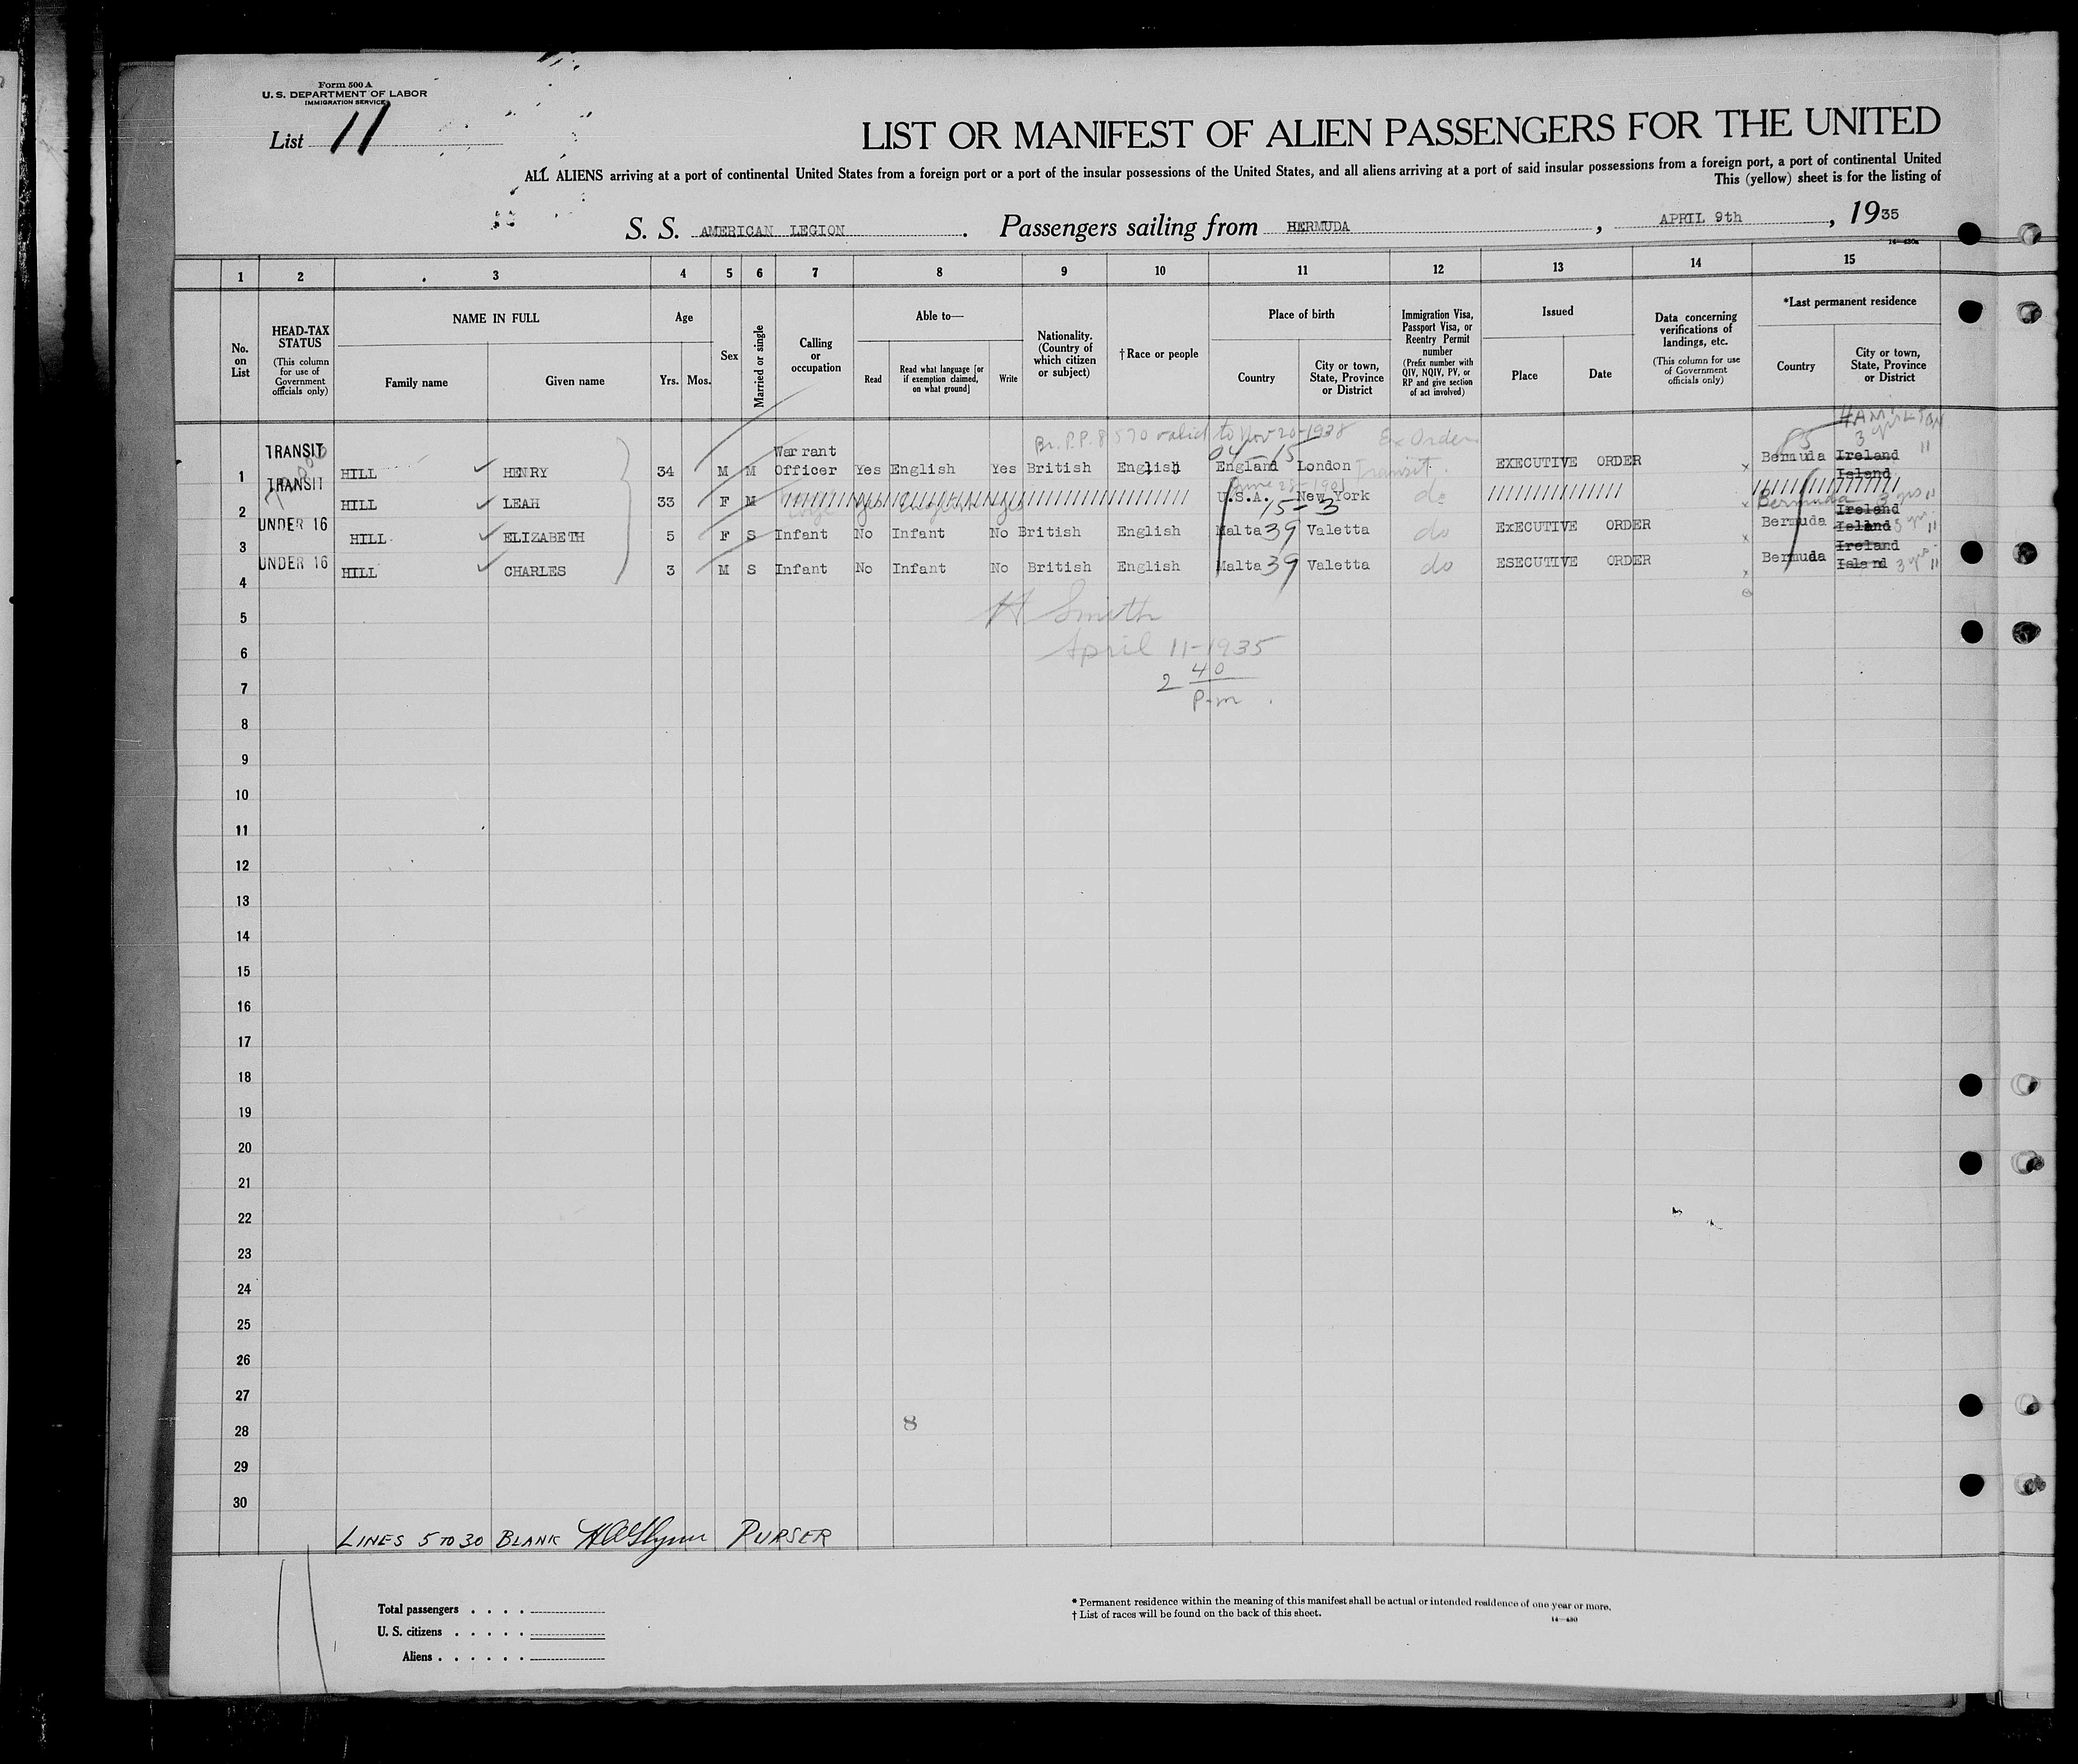 Form 500 A
U. S. DEPARTMENT OF LABOR
IMMIGRATION SERVICE
List 11
LIST OR MANIFEST OF ALIEN PASSENGERS FOR THE UNITED
ALL ALIENS arriving at a port of continental United States from a foreign port or a port of the insular possessions of the United States, and all aliens arriving at a port of said insular possessions from a foreign port, a port of continental United
This (yellow) sheet is for the listing of
S. S. AMERICAN LEGION . Passengers sailing from BERMUDA , APRIL 9th , 1935
1 2 3 4 5 6 7 8 9 10 11 12 13 14 15
No. on List
HEAD-TAX STATUS (This column for use of Government officials only)
NAME IN FULL
Family name
Given name
Age
Yrs. Mos.
Sex
Married or single
Calling or occupation
Able to—
Read
Read what language [or if exemption claimed, on what ground]
Write
Nationality. (Country of which citizen or subject)
†Race or people
Place of birth
Country
City or town, State, Province or District
Immigration Visa, Passport Visa, or Reentry Permit number (Prefix number with QIV, NQIV, PV, or RP and give section of act involved)
Issued
Place
Date
Data concerning verifications of landings, etc. (This column for use of Government officials only)
*Last permanent residence
Country
City or town, State, Province or District
HAMILTON
Br. P.P. 8570 valid to Nov 20-1938 Ex Order
04-15 Transit 3 yrs
1 TRANSIT HILL HENRY 34 M M Warrant Officer Yes English Yes British English England London EXECUTIVE ORDER Bermuda Ireland Island "
June 28-1901
2 TRANSIT HILL LEAH 33 F M Yes English Yes U.S.A. New York do Bermuda 3 yrs "
15-3
3 UNDER 16 HILL ELIZABETH 5 F S Infant No Infant No British English Malta 39 Valetta do ExECUTIVE ORDER Bermuda Ireland Island 3 yrs "
4 UNDER 16 HILL CHARLES 3 M S Infant No Infant No British English Malta 39 Valetta do ESECUTIVE ORDER Bermuda Ireland Island 3 yrs "
5 H Smith
6 April 11-1935
7 2 40 P-m
8
9
10
11
12
13
14
15
16
17
18
19
20
21
22
23
24
25
26
27
28 8
29
30
LINES 5 TO 30 BLANK PURSER
Total passengers . . . .
U. S. citizens . . . . .
Aliens . . . . . .
* Permanent residence within the meaning of this manifest shall be actual or intended residence of one year or more.
† List of races will be found on the back of this sheet.